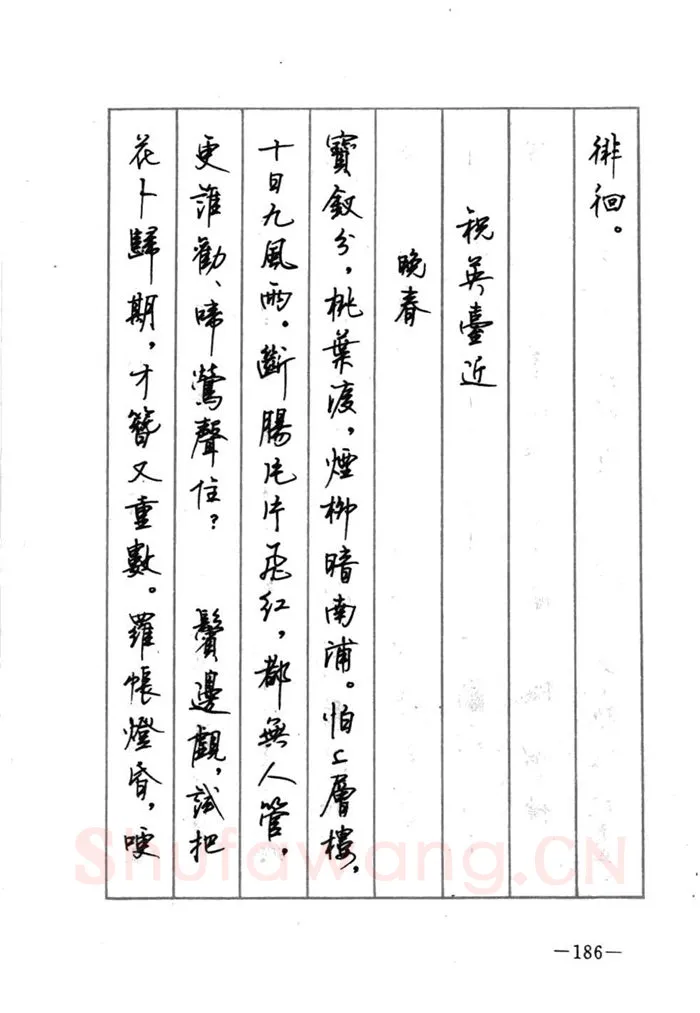 徘徊。
祝英臺近
晚春
寶釵分，桃葉渡，煙柳暗南浦。怕上層樓，
十日九風雨。斷腸片片飛紅，都無人管，
更誰勸、啼鶯聲住？　鬢邊觀，試把
花卜歸期，才簪又重數。羅帳燈昏，哽
Shufawang.CN
—186—